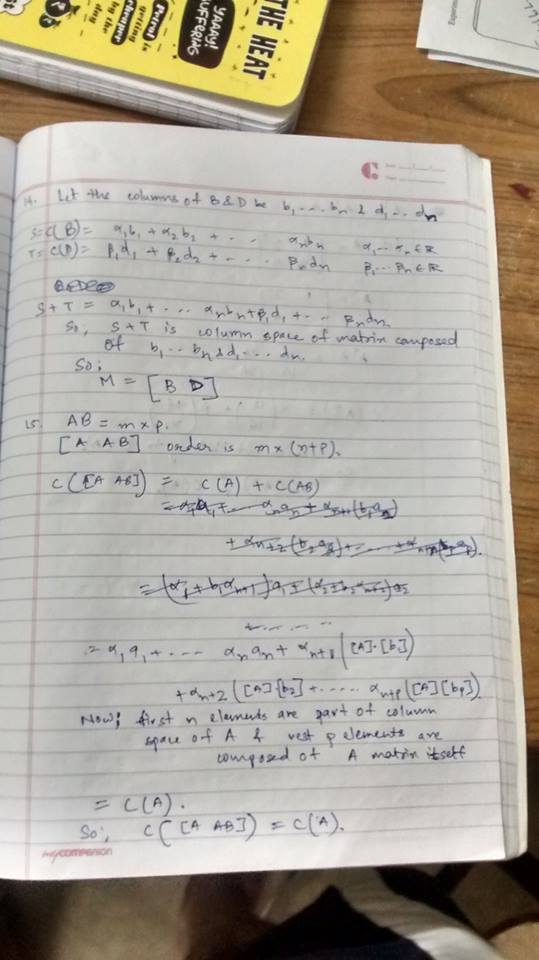 THE HEAT
YAAAY!
SUFFERING
Petrol is
getting
cheaper
by the
day
14. Let the columns of B & D be b₁ ... bₙ & d₁ .. dₙ
S = C(B) = α₁b₁ + α₂b₂ + .. αₙbₙ α₁ .. αₙ ∈ ℝ
T = C(D) = β₁d₁ + β₂d₂ + .... βₙdₙ β₁ ... βₙ ∈ ℝ
S + T = α₁b₁ + ... αₙbₙ + β₁d₁ + .. βₙdₙ.
So, S + T is column space of matrix composed
of b₁ ... bₙ & d₁ .... dₙ.
So;
M = [B D]
15. AB = m × p.
[A AB] order is m × (n+p).
C([A AB]) = C(A) + C(AB)
= α₁a₁ + .... αₙaₙ + αₙ₊₁([A]·[b₁])
+ αₙ₊₂([A][b₂] + ..... αₙ₊ₚ([A][bₚ])
Now; first n elements are part of column
space of A & rest p elements are
composed of A matrix itself
= C(A).
So; C([A AB]) = C(A).
COMPANION